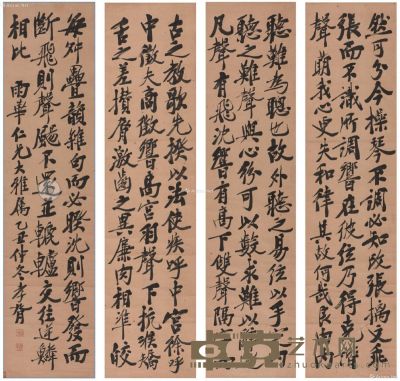 然可分今操琴不調必知改張摛文乖
張而不識所調響在彼弦乃得克諧
聲萌我心更失和律其故何哉良由內
聽難為聰也故外聽之易弦以手定內
聽之難聲與心紛可以數求難以辭逐
凡聲有飛沈響有高下雙聲隔字而
古之教歌先揆以法使疾呼中宮徐呼
中徵夫商徵響高宮羽聲下抗喉矯
舌之差攢脣激齒之異廉肉相準皎
每舛疊韻雜句而必睽沈則響發而
斷飛則聲颺不還並轆轤交往逆鱗
相比 雨華仁兄大雅屬 乙丑仲冬孝胥